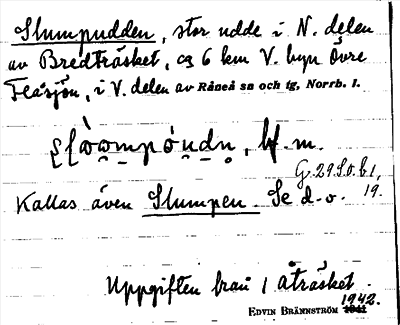 Slumpudden, stor udde i N. delen
av Bredträsket, ca 6 km V. byn Övre
Flåsjön, i V. delen av Råneå sn och tg, Norrb. l.
bf. m.
G. 29 S.o.b 1,
19.
Kallas även Slumpen. Se d.o.
Uppgiften från 1 Åträsket.
1942.
EDVIN BRÄNNSTRÖM 1941